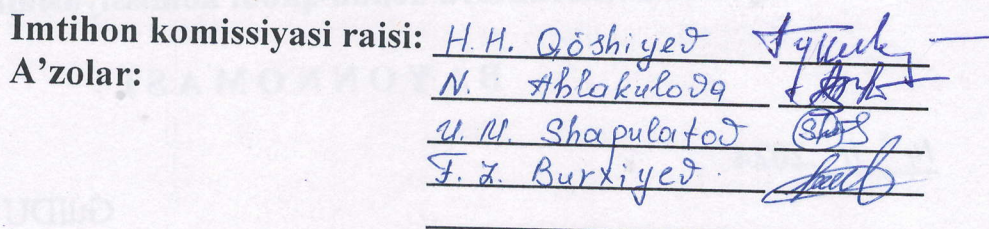 Imtihon komissiyasi raisi: H. H. Qōshiyev
A’zolar: N. Ablakulova
U. M. Shapulatov
F. Z. Burxiyev